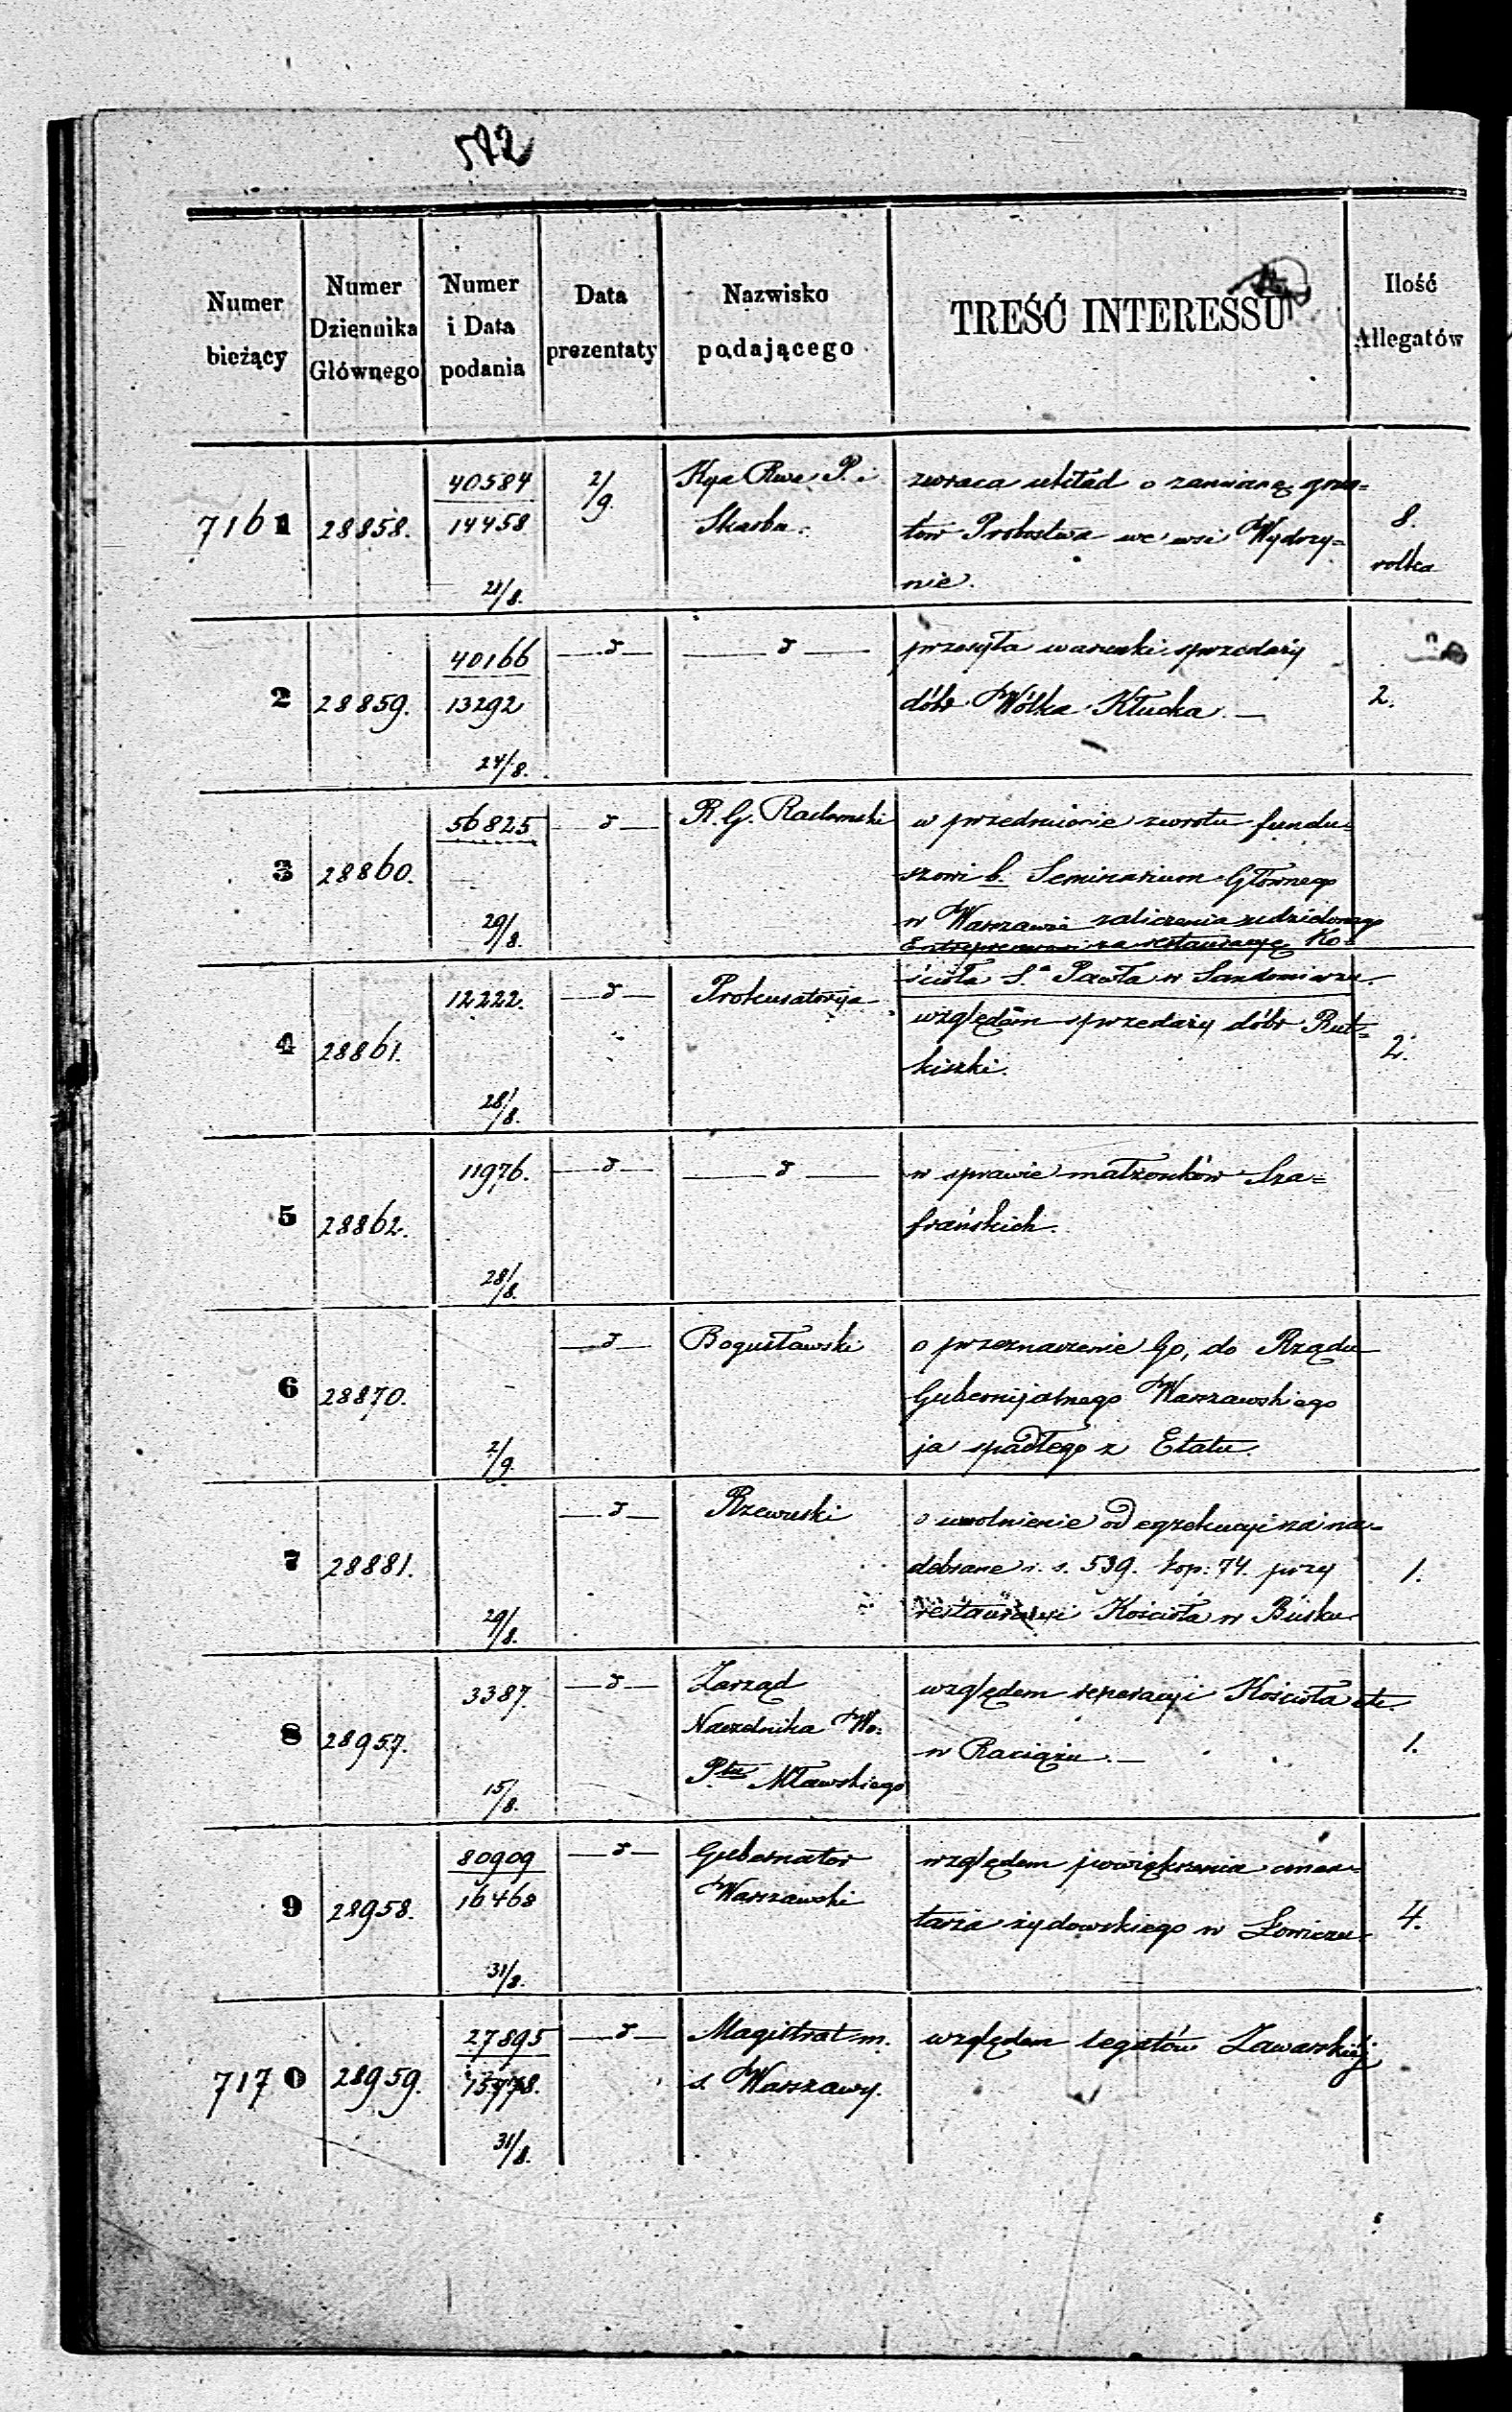 582
Numer bieżący
Numer Dziennika Głównego
Numer i Data podania
Data prezentaty
Nazwisko podającego
TREŚĆ INTERESSU
Ilość Allegatów
7161
28858.
40584
14458
21/8.
2/9.
Kya Rwa P. i
Skarbu.
zwraca układ o zamianę grun=
tów Probostwa we wsi Wydrzy=
nie.
8.
rolka
2
28859.
40166
13292
24/8.
—d—
—d—
przesyła warunki sprzedaży
dóbr Wólka Kłucka. —
2.
3
28860.
56825
29/8.
—d—
R. G. Radomski
w przedmiocie zwrotu fundu=
szowi b. Seminarium Głównego
w Warszawie zaliczenia udzielonego
Entreprenerowi za restauracyę Ko=
ścioła Sgo Pawła w Sandomierzu.
4
28861.
12222.
28/8.
—d—
Prokuratorya
względem sprzedaży dóbr Rut=
kiszki.
2.
5
28862.
11976.
28/8.
—d—
—d—
w sprawie małżonków Sza=
frańskich.
6
28870.
2/9.
—d—
Bogusławski
o przeznaczenie Go, do Rządu
Gubernijalnego Warszawskiego
ja spadłego z Etatu.
7
28881.
29/8.
—d—
Rzewuski
o uwolnienie od egzekucyi za na=
debrane r. s. 539. kop: 74. przy
restauracyi Kościoła w Busku
1.
8
28957.
3387.
15/8.
—d—
Zarząd
Naczelnika Wo.
Ptu Mławskiego
względem reperacyi Kościoła etc.
w Raciążu. —
1.
9
28958.
80909
16468
31/8.
—d—
Gubernator
Warszawski
względem powiększenia cmen=
tarza żydowskiego w Łowiczu.
4.
7170
28959.
27895
31/8.
—d—
Magistrat m.
s. Warszawy.
względem legatów Zawarskiéj